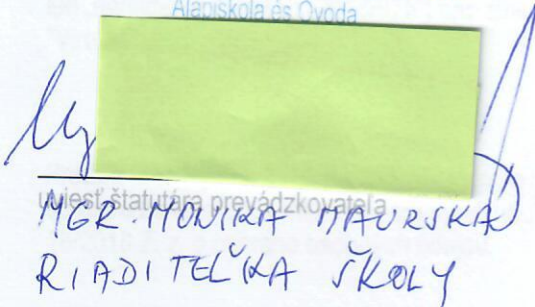 Alapiskola és Óvoda
uviesť štatutára prevádzkovateľa
MGR. MONIKA MAURSKÁ
RIADITEĽKA ŠKOLY